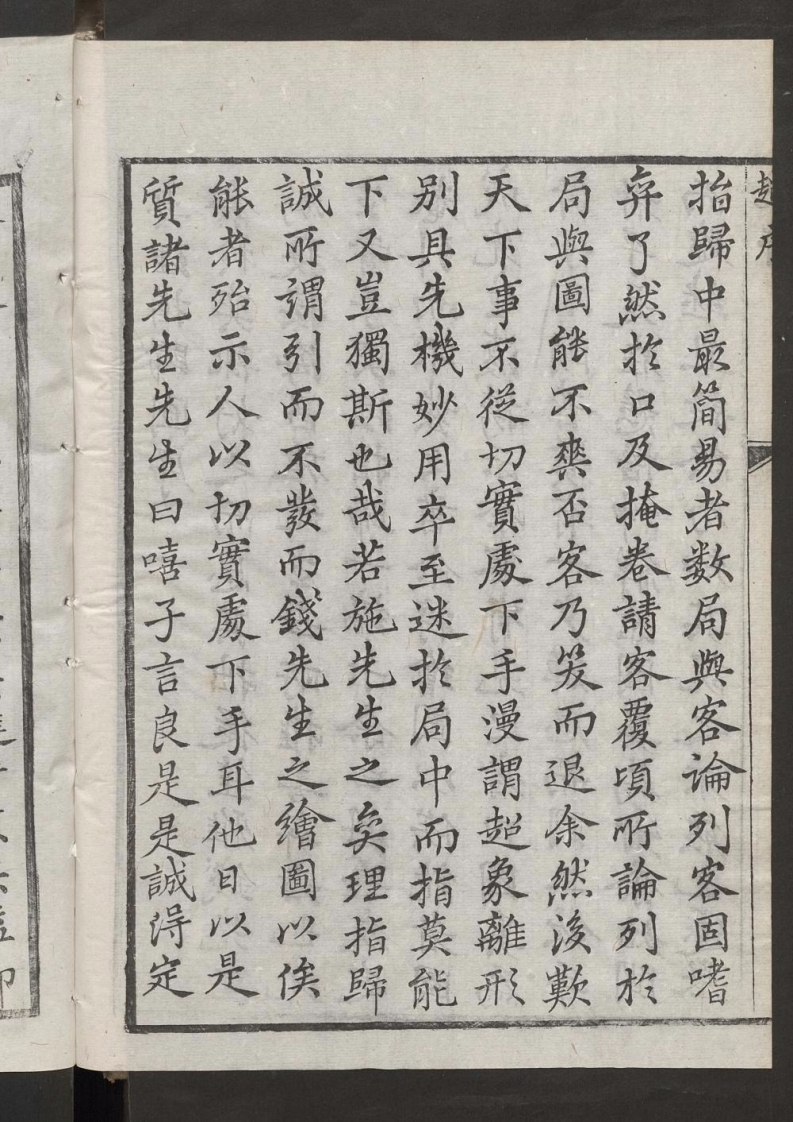 趙序
指歸中最簡易者数局與客論列客固嗜
弈了然於口及掩卷請客覆頃所論列於
局與圖能不爽否客乃笑而退余然後歎
天下事不從切實處下手漫謂超象離形
別具先機妙用卒至迷於局中而指莫能
下又豈獨斯也哉若施先生之奕理指歸
誠所謂引而不發而錢先生之繪圖以俟
能者殆示人以切實處下手耳他日以是
質諸先生先生曰嘻子言良是是誠得定